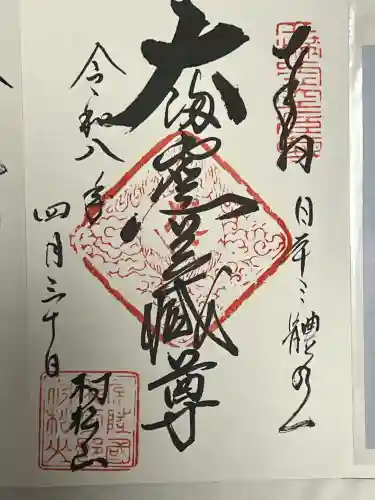 奉拝
日本三體の一
大満虚空蔵尊
令和八年
四月三十日
村松山